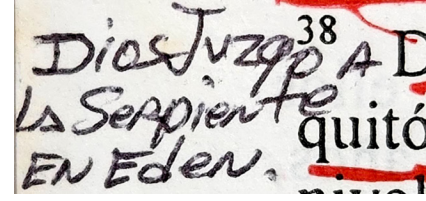 Dios Juzgo A
La Serpiente
EN Eden.
38 D
quitó
nivel